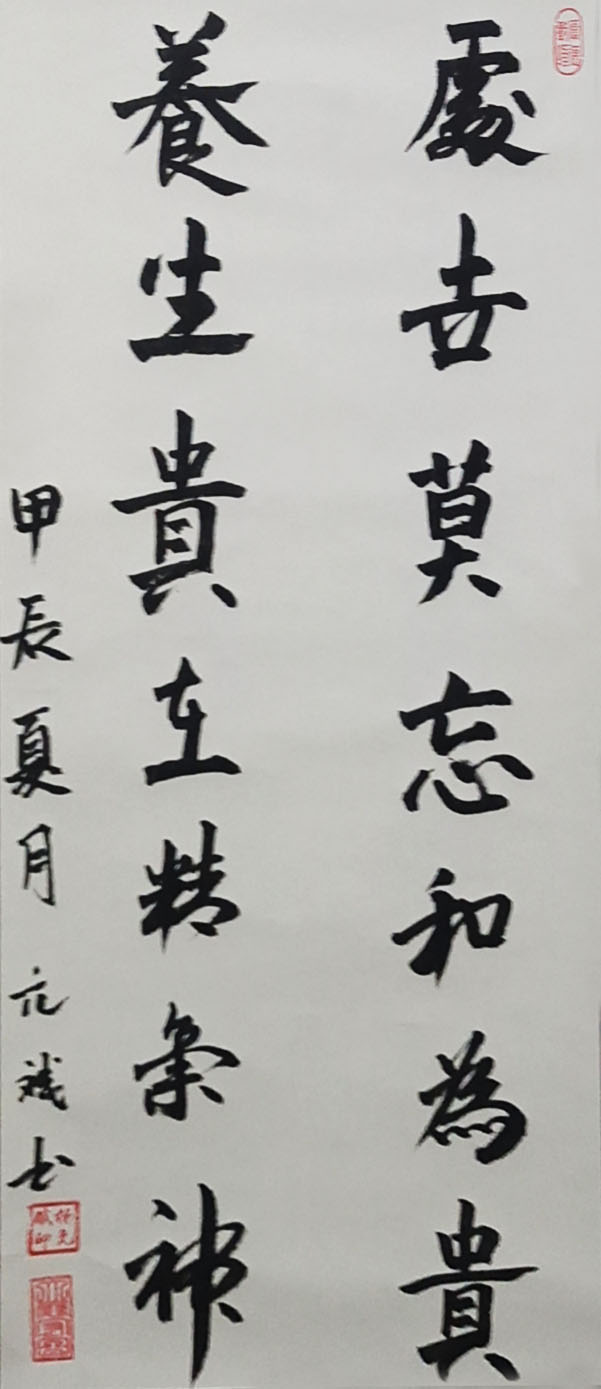 處世莫忘和為貴
養生貴在精氣神
甲辰夏月 斌书